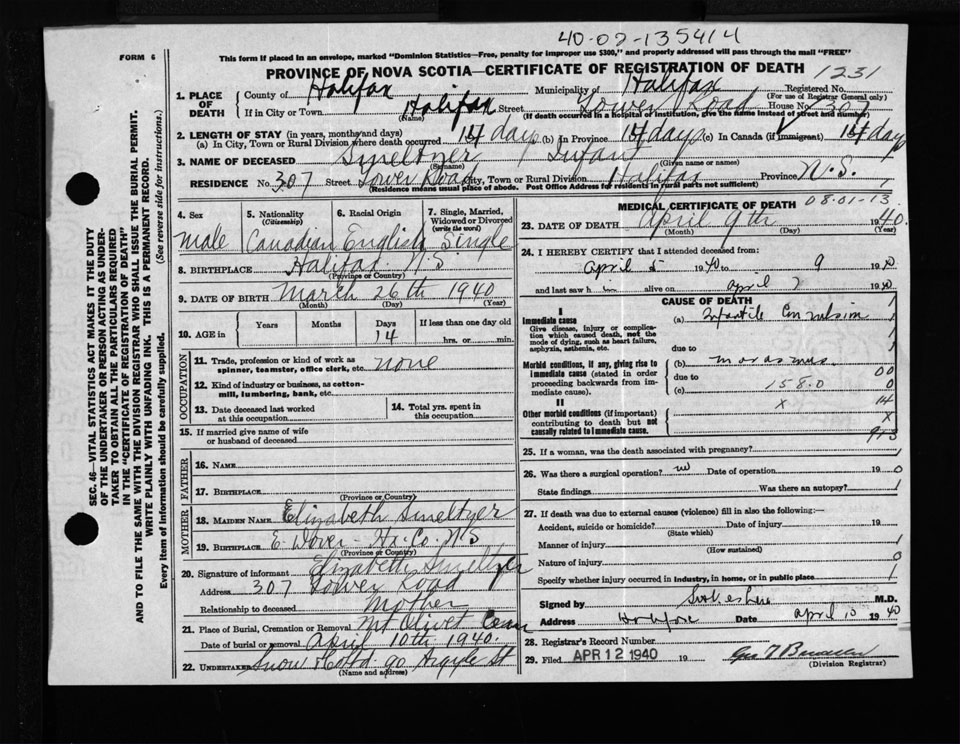 40-07-135414
This form if placed in an envelope, marked "Dominion Statistics—Free, penalty for improper use $300," and properly addressed will pass through the mail "FREE"
FORM 6
PROVINCE OF NOVA SCOTIA—CERTIFICATE OF REGISTRATION OF DEATH 1231
1. PLACE OF DEATH County of Halifax Municipality of Halifax Registered No.
(For use of Registrar General only)
If in City or Town Halifax Street Lower Road House No. 307
(Name) (If death occurred in a hospital or institution, give the name instead of street and number)
2. LENGTH OF STAY (in years, months and days)
(a) In City, Town or Rural Division where death occurred 14 days (b) In Province 14 days (c) In Canada (if immigrant) 14 days
3. NAME OF DECEASED Smeltzer Infant
(Surname) (Given name or names)
RESIDENCE No. 307 Street Lower Road City, Town or Rural Division Halifax Province N.S.
(Residence means usual place of abode. Post Office Address for residents in rural parts not sufficient)
4. Sex 5. Nationality (Citizenship) 6. Racial Origin 7. Single, Married, Widowed or Divorced (write the word)
male Canadian English Single
8. BIRTHPLACE Halifax N.S
(Province or Country)
9. DATE OF BIRTH March 26th 1940
(Month) (Day) (Year)
10. AGE in Years Months Days 14 If less than one day old
hrs. or min.
OCCUPATION
11. Trade, profession or kind of work as spinner, teamster, office clerk, etc. none
12. Kind of industry or business, as cotton-mill, lumbering, bank, etc.
13. Date deceased last worked at this occupation
14. Total yrs. spent in this occupation
15. If married give name of wife or husband of deceased
FATHER
16. NAME
17. BIRTHPLACE
(Province or Country)
MOTHER
18. MAIDEN NAME Elizabeth Smeltzer
19. BIRTHPLACE E. Dover - Hx. Co. N.S
(Province or Country)
20. Signature of informant Elizabeth Smeltzer
Address 307 Lower Road
Relationship to deceased Mother
21. Place of Burial, Cremation or Removal Mt Olivet Cem
Date of burial or removal April 10th 1940.
22. UNDERTAKER Snow & Co Ltd. 90 Argyle St
(Name and address)
MEDICAL CERTIFICATE OF DEATH 08-01-13
23. DATE OF DEATH April 9th 1940.
(Month) (Day) (Year)
24. I HEREBY CERTIFY that I attended deceased from:
April 5 1940 to 9 1940
and last saw h m alive on april 7 1940
CAUSE OF DEATH
I
Immediate cause
Give disease, injury or complication which caused death, not the mode of dying, such as heart failure, asphyxia, asthenia, etc.
(a) Infantile Convulsion
due to
Morbid conditions, if any, giving rise to immediate cause (stated in order proceeding backwards from immediate cause).
(b) marasmus
due to
(c) 158.0
II
Other morbid conditions (if important) contributing to death but not causally related to immediate cause.
25. If a woman, was the death associated with pregnancy?
26. Was there a surgical operation? no Date of operation 19
State findings Was there an autopsy?
27. If death was due to external causes (violence) fill in also the following:—
Accident, suicide or homicide? Date of injury 19
(State which)
Manner of injury
(How sustained)
Nature of injury
Specify whether injury occurred in industry, in home, or in public place
Signed by M.D.
Address Halifax Date april 10 1940
28. Registrar's Record Number
29. Filed APR 12 1940 19
(Division Registrar)
SEC. 46—VITAL STATISTICS ACT MAKES IT THE DUTY OF THE UNDERTAKER OR PERSON ACTING AS UNDERTAKER TO OBTAIN ALL THE PARTICULARS REQUIRED IN THE "CERTIFICATE OF REGISTRATION OF DEATH"
AND TO FILE THE SAME WITH THE DIVISION REGISTRAR WHO SHALL ISSUE THE BURIAL PERMIT.
WRITE PLAINLY WITH UNFADING INK. THIS IS A PERMANENT RECORD.
Every item of information should be carefully supplied. (See reverse side for instructions.)